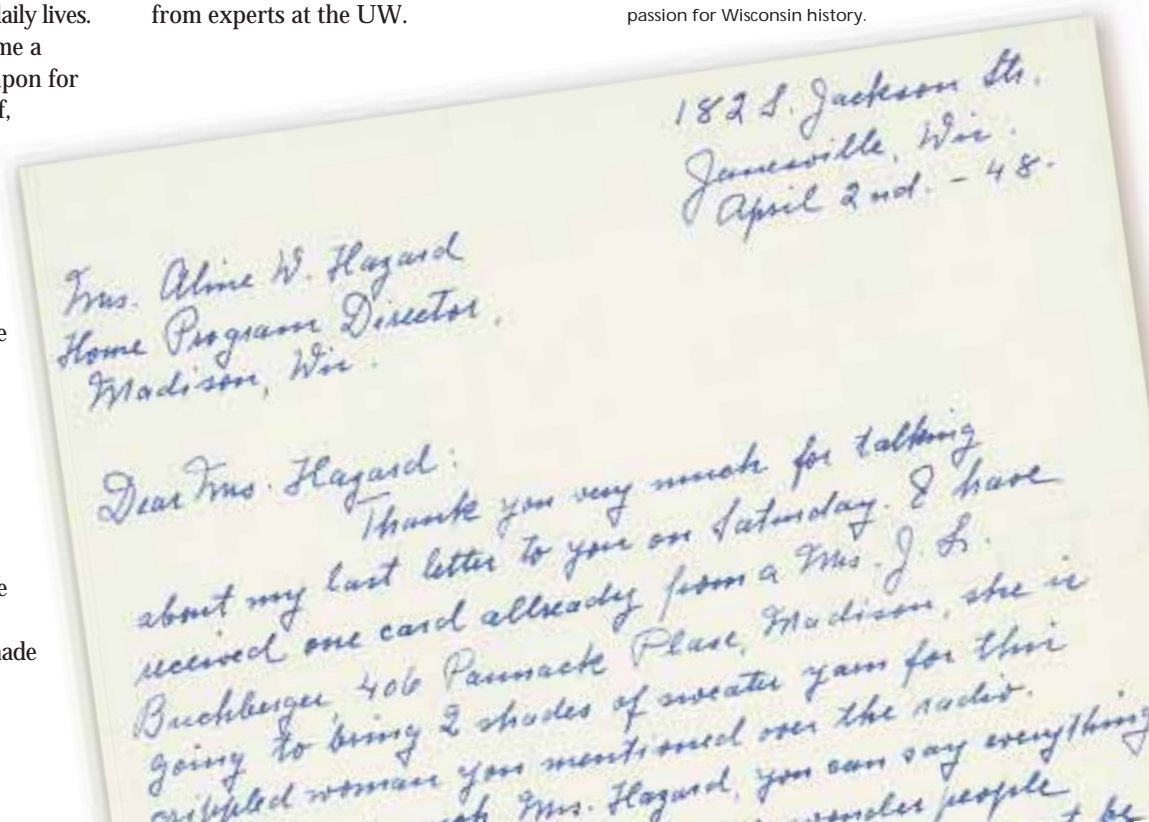 daily lives.
me a
upon for
f,
e
e
made
from experts at the UW.
passion for Wisconsin history.
182 S. Jackson Str.
Janesville, Wis.
April 2nd. - 48.
Mrs. Aline W. Hazard
Home Program Director,
Madison, Wis.
Dear Mrs. Hazard:
Thank you very much for talking
about my last letter to you on Saturday. I have
received one card allready from a Mrs. J. L.
Buchberger, 406 Plase, Madison, she is
going to bring 2 shades of sweater yarn for this
crippled woman you mentioned over the radio.
Mrs. Hazard, you can say everything
wonder people
t be